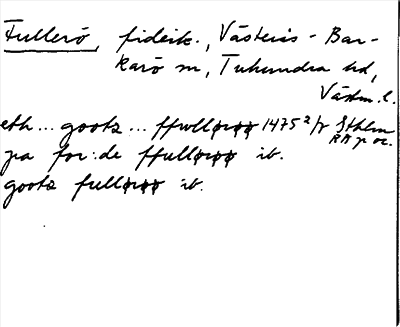 Fullerö, fideik., Västerås-Bar-
karö sn, Tuhundra hd,
Västm. l.
eth ... gootz ... ffwllørøø 1475 2/7 Sthlm
RA p or.
pa for:de ffullørøø ib.
gootz fullørøø ib.